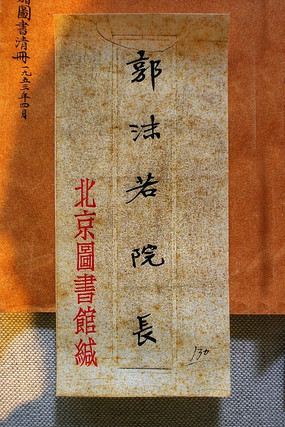 郭沫若院長
北京圖書館緘
圖書清冊
一九五三年四月